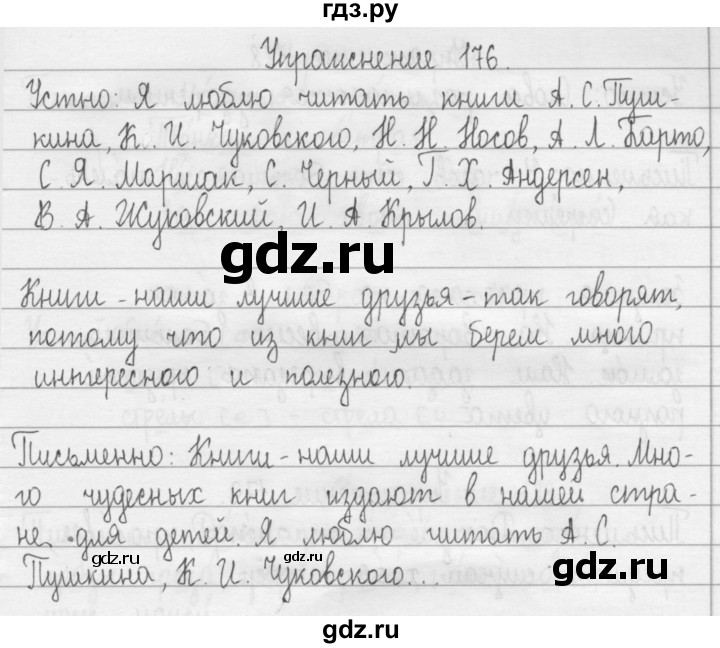 гдз.ру
Упражнение 176.
Устно: Я люблю читать книги А. С. Пуш-
кина, К. И. Чуковского, Н. Н. Носов, А. Л. Барто,
С. Я. Маршак, С. Черный, Г. Х. Андерсен,
В. А. Жуковский, И. А. Крылов.
gdz.ru
Книги - наши лучшие друзья - так говорят,
потому что из книг мы берем много
интересного и полезного.
Письменно: Книги - наши лучшие друзья. Мно-
го чудесных книг издают в нашей стра-
не для детей. Я люблю читать А. С.
gdz.ru
gdz.ru
Пушкина, К. И. Чуковского...
gdz.ru
gdz.ru